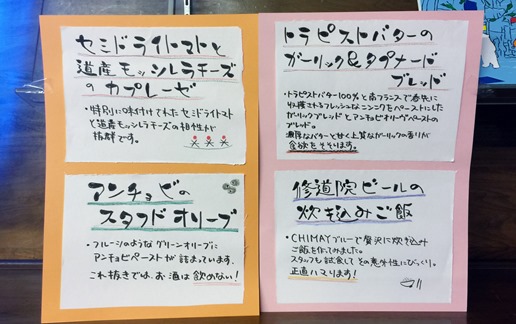 セミドライトマトと
道産モッシレラチーズ
のカプレーゼ
・特別に味付けてれたセミドライトマト
と道産モッシレラチーズの相性が
抜群です。
アンチョビの
スタフドオリーブ
・フルーシのようなグリーンオリーブに
アンチョビペーストが詰まっています。
これ抜きでは、お酒は飲めない!
トラピストバターの
ガーリック&タプナード
ブレッド
・トラピストバター100%と南フランスで春先に
収穫されるフレッシュなニンニクをペーストにした
ガーリックブレッドとアンチョビオリーヴペーストの
ブレッド。
濃厚なバターと甘く上質なガーリックの香りが
食欲をそそります。
修道院ビールの
炊き込みご飯
・CHIMAYブルーで贅沢に炊き込み
ご飯を作ってみました。
スタッフも試食してその意外性にびっくり。
正直ハマります!